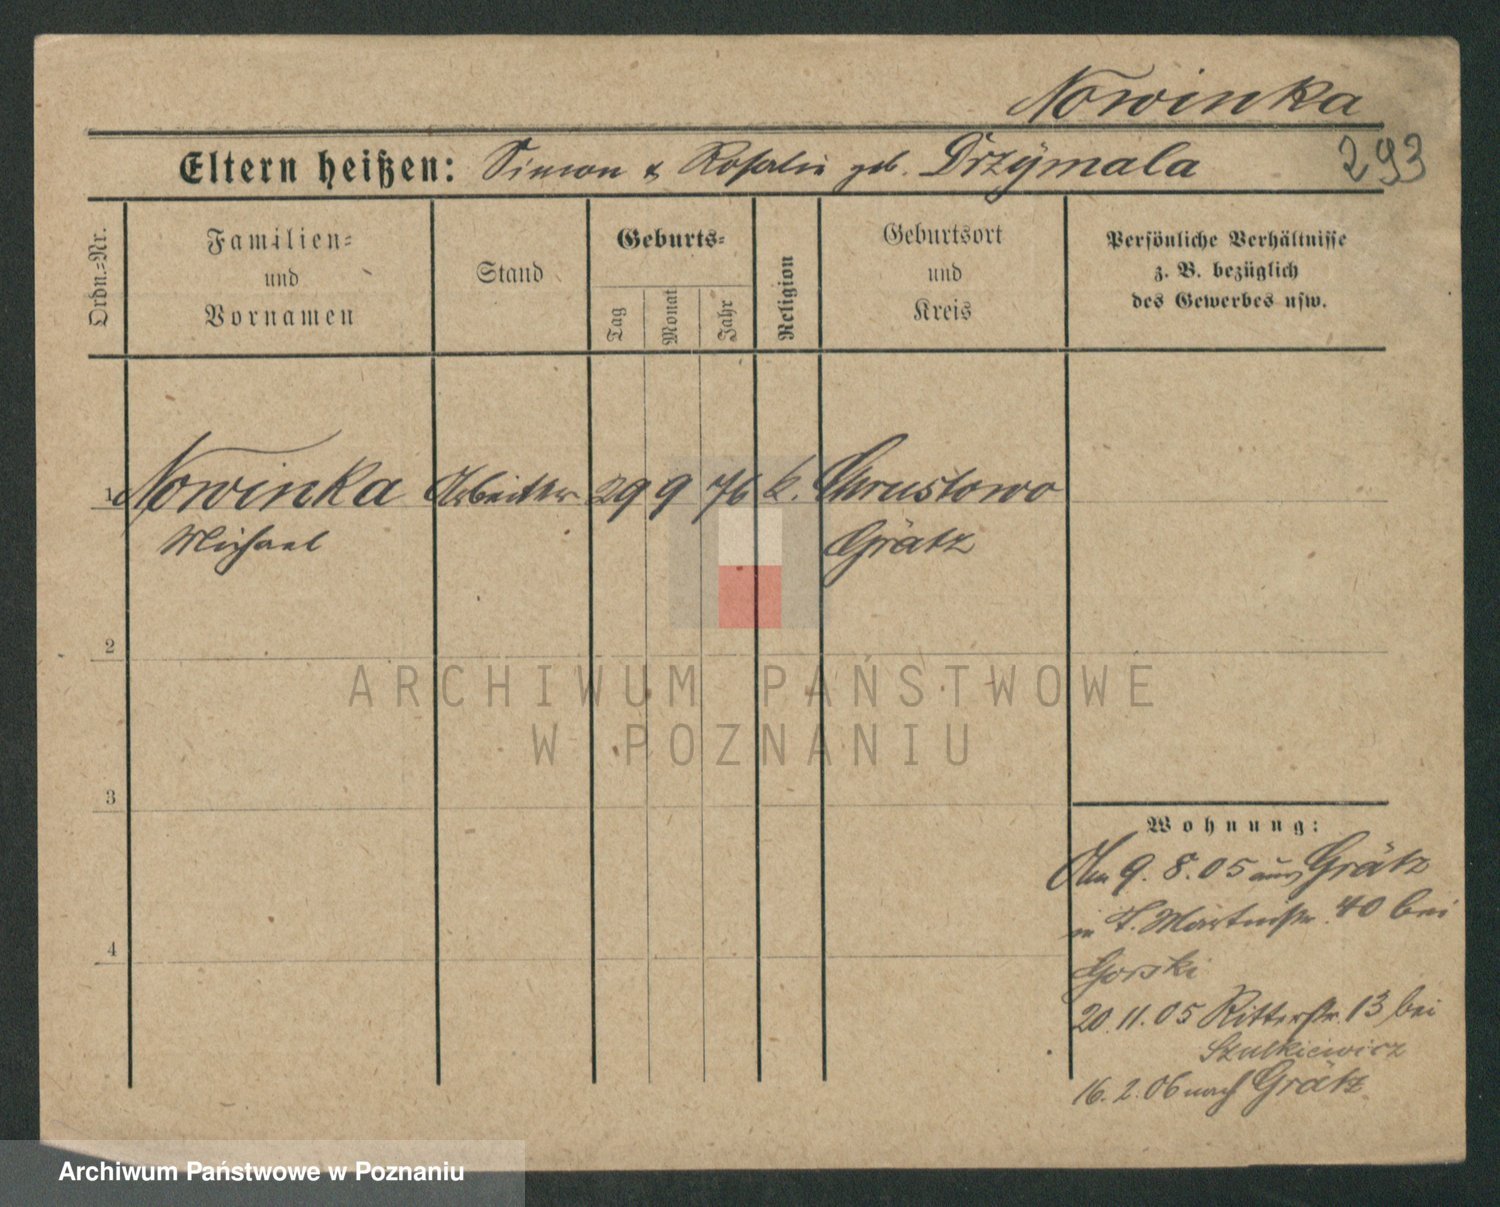 Nowinka
293
Eltern heißen: Simon & Rosalie geb. Drzymala
Ordn.=Nr.
Familien=
und
Vornamen
Stand
Geburts=
Tag
Monat
Jahr
Religion
Geburtsort
und
Kreis
Persönliche Verhältnisse
z. B. bezüglich
des Gewerbes usw.
1 Nowinka Arbeiter 29 9 76 k. Chrustowo
Michael Grätz
2
ARCHIWUM PAŃSTWOWE
W POZNANIU
3
Wohnung:
Am 9. 8. 05 aus Grätz
in St. Martinstr. 40 bei
Gorski
4
20. 11. 05 Ritterstr. 13 bei
Szulkiewicz
16. 2. 06 nach Grätz
Archiwum Państwowe w Poznaniu